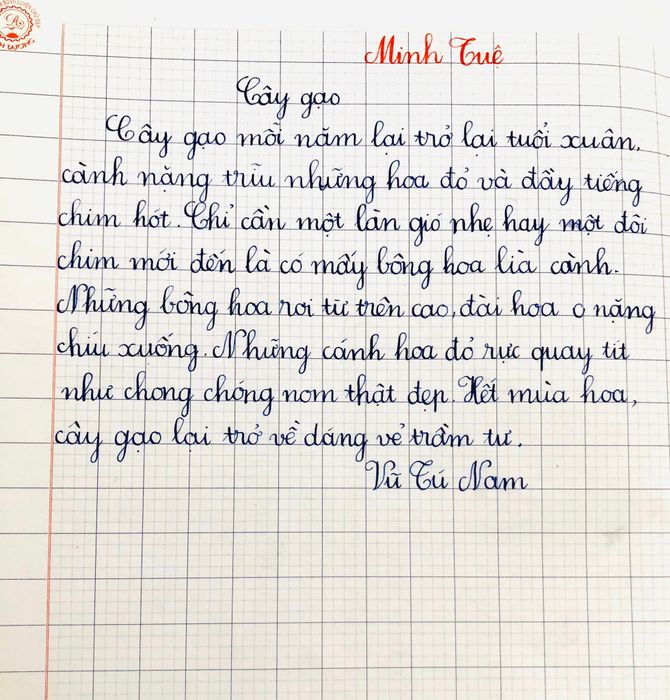 Minh Tuệ
Cây gạo
Cây gạo mỗi năm lại trở lại tuổi xuân,
cành nặng trĩu những hoa đỏ và đầy tiếng
chim hót. Chỉ cần một làn gió nhẹ hay một đôi
chim mới đến là có mấy bông hoa lìa cành.
Những bông hoa rơi từ trên cao, đài hoa nặng
chúi xuống. Những cánh hoa đỏ rực quay tít
như chong chóng nom thật đẹp. Hết mùa hoa,
cây gạo lại trở về dáng vẻ trầm tư.
Vũ Tú Nam